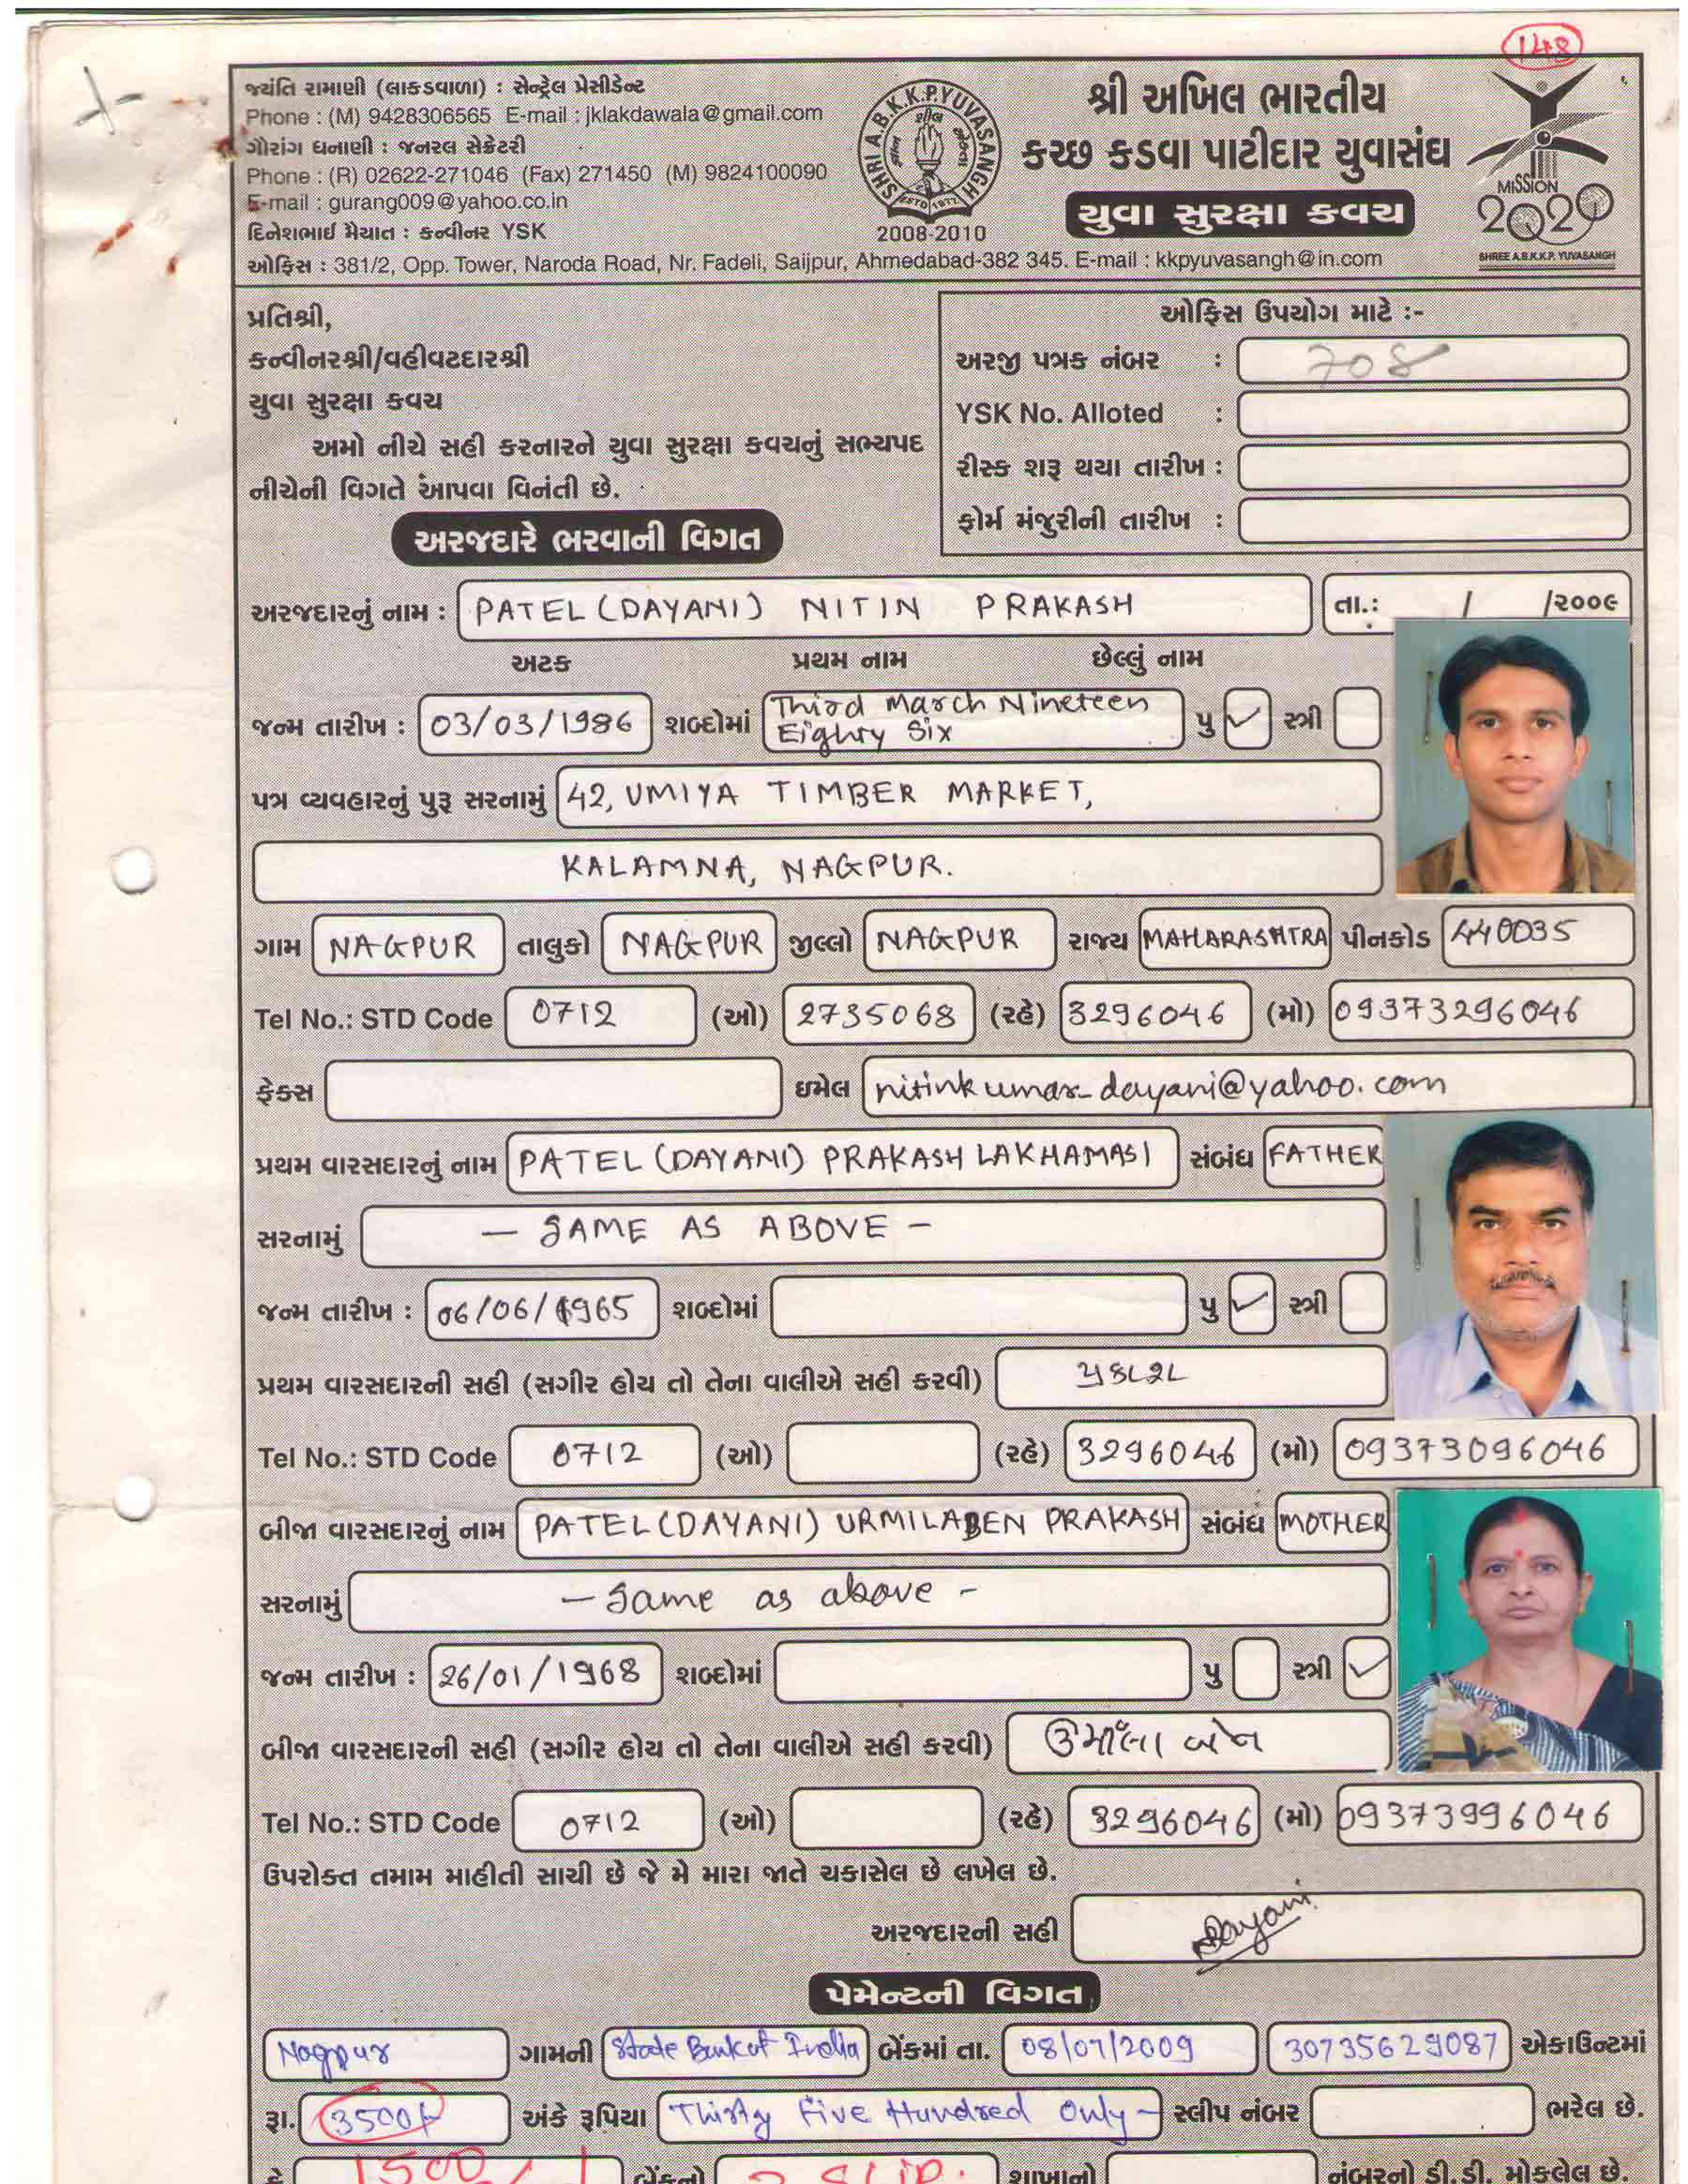 148
જયંતિ રામાણી (લાકડવાળા) : સેન્ટ્રેલ પ્રેસીડેન્ટ
Phone : (M) 9428306565 E-mail : jklakdawala@gmail.com
ગૌરાંગ ધનાણી : જનરલ સેક્રેટરી
Phone : (R) 02622-271046 (Fax) 271450 (M) 9824100090
E-mail : gurang009@yahoo.co.in
દિનેશભાઈ મૈયાત : કન્વીનર YSK
SHRI A.B.K.K.P.YUVASANGH
ESTD 1977
2008-2010
શ્રી અખિલ ભારતીય
કચ્છ કડવા પાટીદાર યુવાસંઘ
યુવા સુરક્ષા કવચ
MISSION
2020
SHREE A.B.K.K.P. YUVASANGH
ઓફિસ : 381/2, Opp. Tower, Naroda Road, Nr. Fadeli, Saijpur, Ahmedabad-382 345. E-mail : kkpyuvasangh@in.com
પ્રતિશ્રી,
કન્વીનરશ્રી/વહીવટદારશ્રી
યુવા સુરક્ષા કવચ
અમો નીચે સહી કરનારને યુવા સુરક્ષા કવચનું સભ્યપદ
નીચેની વિગતે આપવા વિનંતી છે.
ઓફિસ ઉપયોગ માટે :-
અરજી પત્રક નંબર : 708
YSK No. Alloted :
રીસ્ક શરૂ થયા તારીખ :
ફોર્મ મંજુરીની તારીખ :
અરજદારે ભરવાની વિગત
અરજદારનું નામ : PATEL (DAYANI) NITIN PRAKASH તા.: / /૨૦૦૯
અટક પ્રથમ નામ છેલ્લું નામ
જન્મ તારીખ : 03/03/1986 શબ્દોમાં Third March Nineteen Eighty Six પુ ✓ સ્ત્રી
પત્ર વ્યવહારનું પુરૂ સરનામું 42, UMIYA TIMBER MARKET,
KALAMNA, NAGPUR.
ગામ NAGPUR તાલુકો NAGPUR જીલ્લો NAGPUR રાજ્ય MAHARASHTRA પીનકોડ 440035
Tel No.: STD Code 0712 (ઓ) 2735068 (રહે) 3296046 (મો) 09373296046
ફેક્સ ઇમેલ nitinkumar_dayani@yahoo.com
પ્રથમ વારસદારનું નામ PATEL (DAYANI) PRAKASH LAKHAMASI સંબંધ FATHER
સરનામું — SAME AS ABOVE —
જન્મ તારીખ : 06/06/1965 શબ્દોમાં પુ ✓ સ્ત્રી
પ્રથમ વારસદારની સહી (સગીર હોય તો તેના વાલીએ સહી કરવી) પ્રકાશ
Tel No.: STD Code 0712 (ઓ) (રહે) 3296046 (મો) 09373096046
બીજા વારસદારનું નામ PATEL (DAYANI) URMILABEN PRAKASH સંબંધ MOTHER
સરનામું — Same as above —
જન્મ તારીખ : 26/01/1968 શબ્દોમાં પુ સ્ત્રી ✓
બીજા વારસદારની સહી (સગીર હોય તો તેના વાલીએ સહી કરવી) ઉર્મીલા બેન
Tel No.: STD Code 0712 (ઓ) (રહે) 3296046 (મો) 09373996046
ઉપરોક્ત તમામ માહીતી સાચી છે જે મે મારા જાતે ચકાસેલ છે લખેલ છે.
અરજદારની સહી Dayani
પેમેન્ટની વિગત
Nagpur ગામની State Bank of India બેંકમાં તા. 08/07/2009 30735629087 એકાઉન્ટમાં
રૂા. 3500/- અંકે રૂપિયા Thirty Five Hundred Only — સ્લીપ નંબર ભરેલ છે.
1500 બેંકનો 2 SLIP. શાખાનો નંબરનો ડી.ડી. મોકલેલ છે.